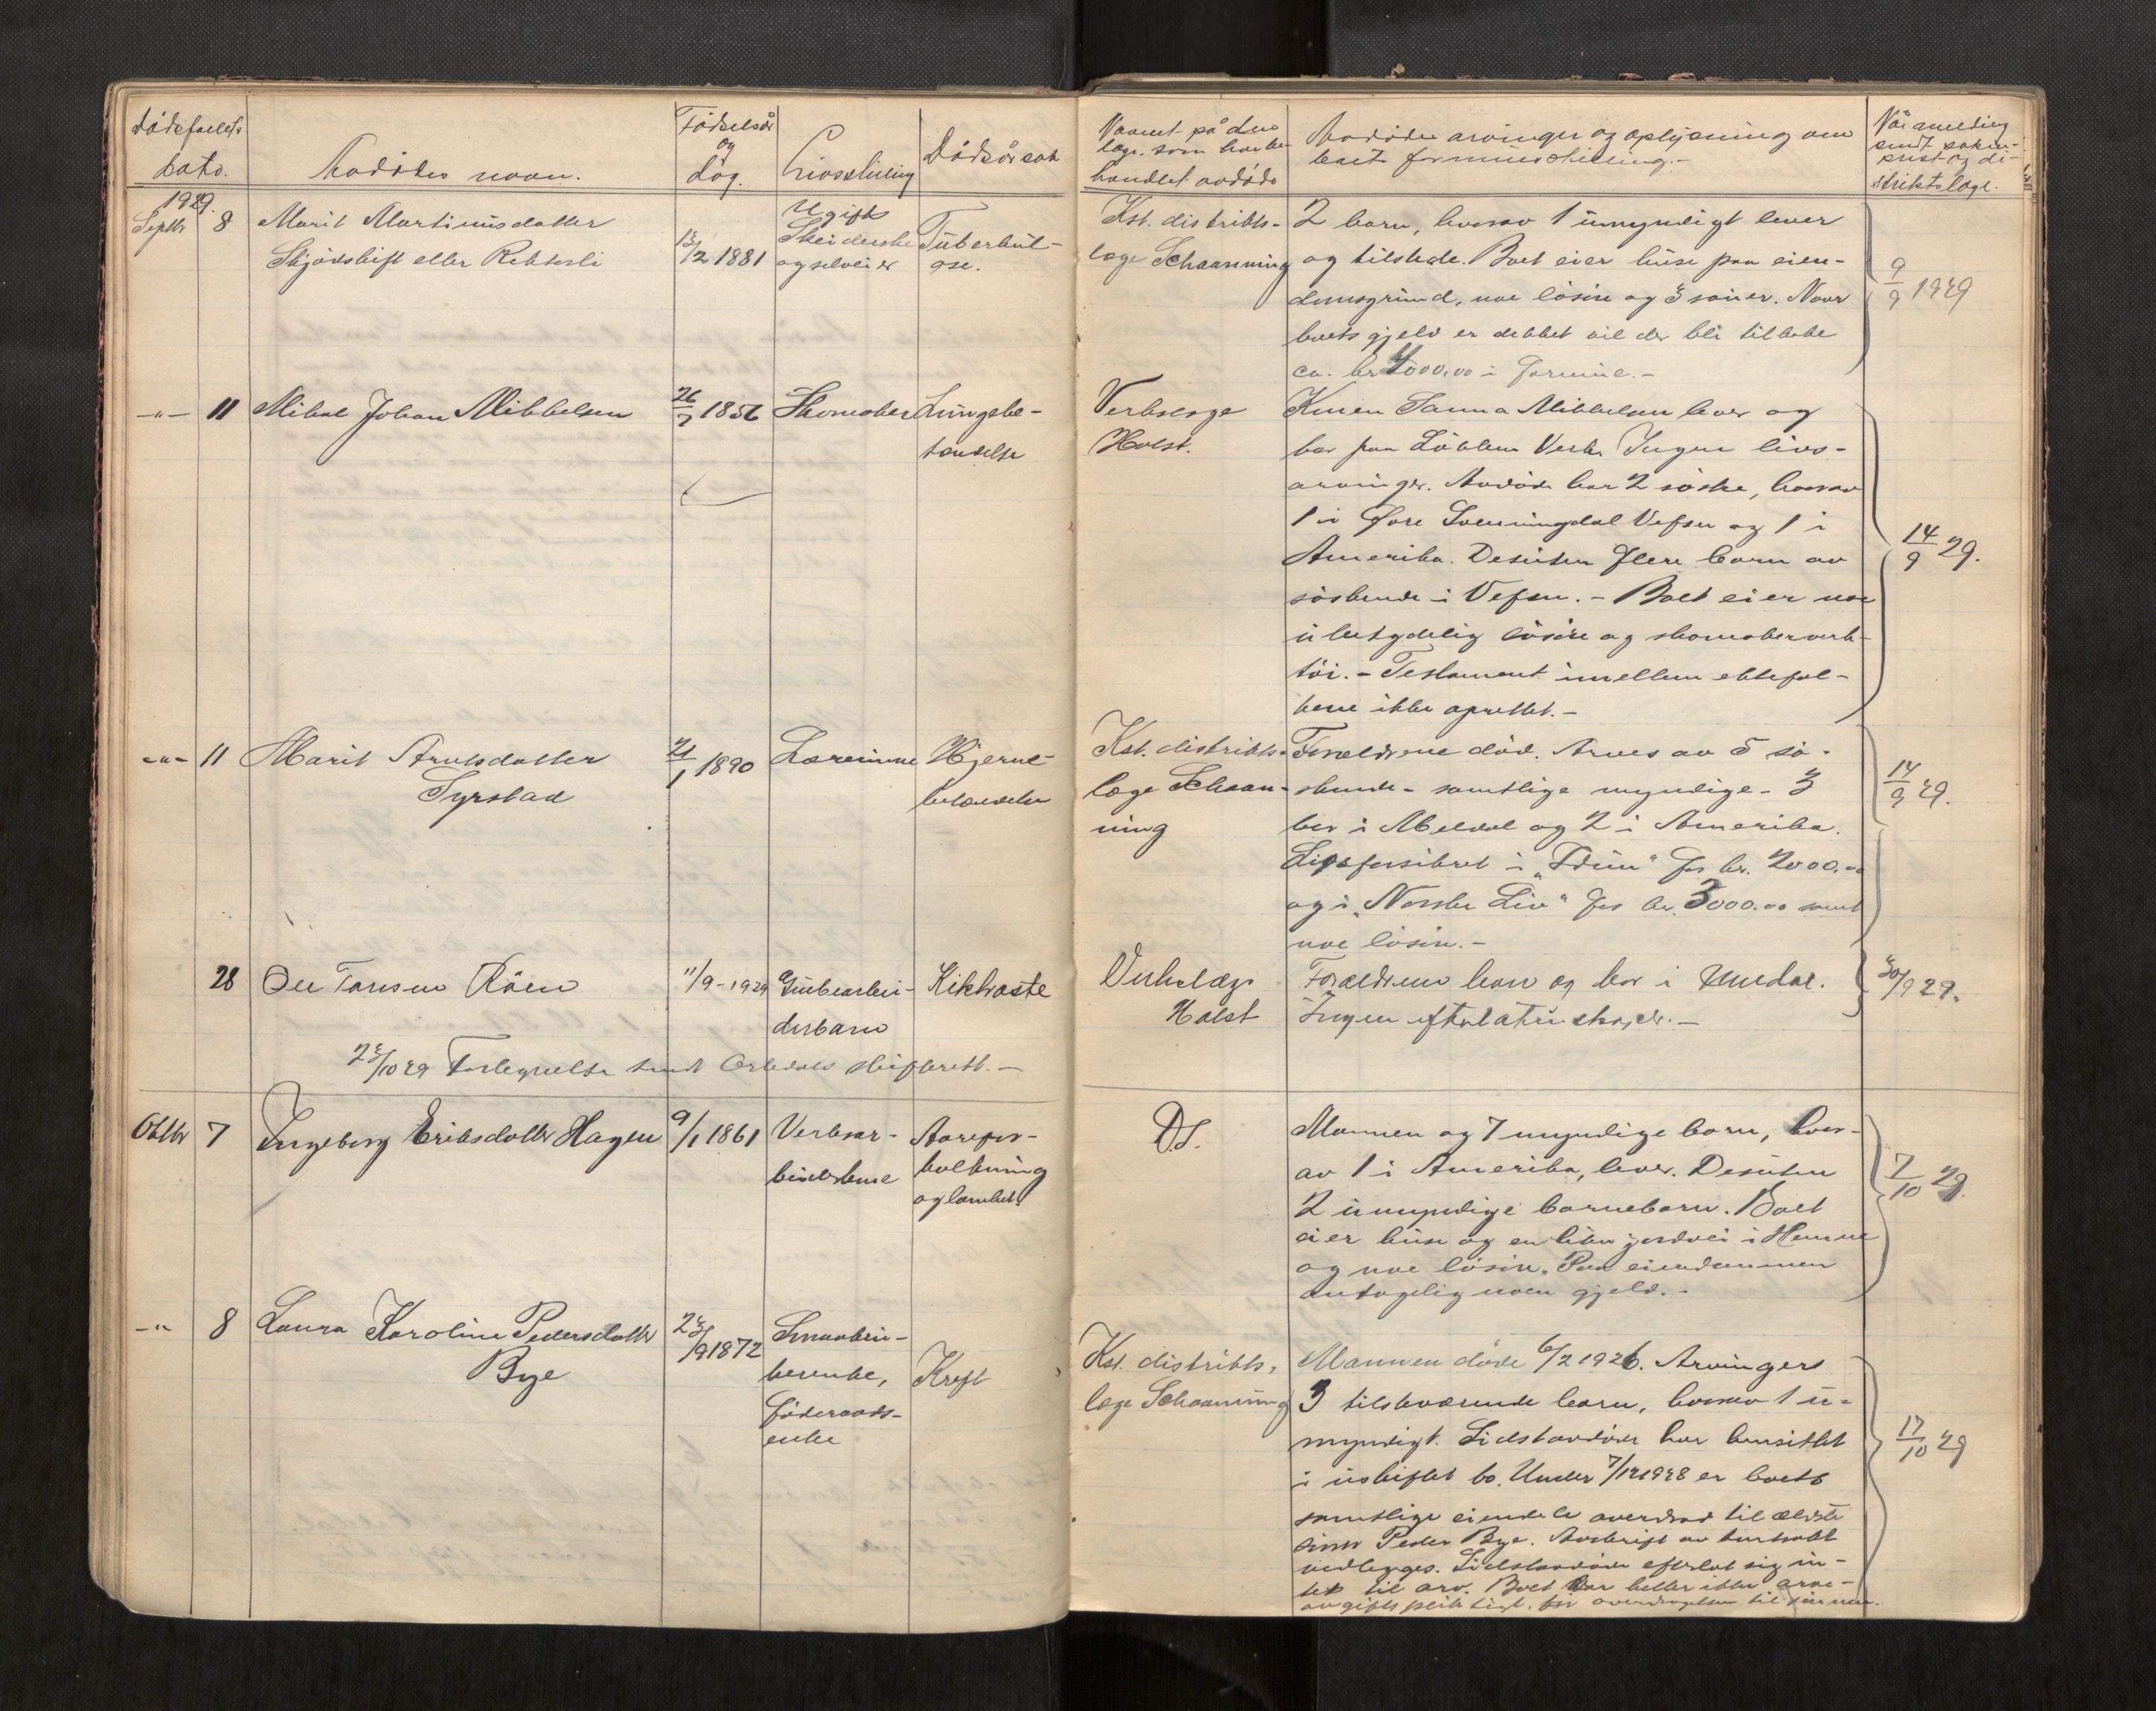 Dødsfallets
dato.
Avdødes navn.
Fødselsår
og
dag.
Livsstilling
Dødsårsak
Navnet på den
læge, som har be-
handlet avdøde
Avdødes arvinger og oplysning om
boets formuestilling.-
Når melding
sendt soknе-
prest og di-
striktslæge.
1929.
Septbr 8
Marit Martinusdatter
Skjødskift eller Rekterli
13/2 1881
Ugift
og selveier
Tuberkul-
ose.
Kst. distrikts-
læge Schaanning
2 barn, hvorav 1 umyndigt lever
og tilstede. Boet eier huse paa eien-
domsgrund, noe løsøre og 3 sauer. Naar
boets gjeld er dekket vil der bli tilbake
ca. kr 4000,00 i formue.-
9/9 1929
-"- 11
Mikal Johan Mikkelsen
26/2 1856
Skomaker
Lungebe-
tendelse
Verkslæge
Holst.
Konen Sanna Mikkelsen lever og
bor paa Løkken Verk. Ingen livs-
arvinger. Avdøde har 2 søske, hvorav
1 i Øvre Svenningdal Vefsn og 1 i
Amerika. Desuten flere barn av
søskende i Vefsn. - Boet eier noe
ubetydelig løsøre og skomakerverk-
tøi. - Testament imellem ektefol-
kene ikke oprettet.-
14/9 29.
-"- 11
Marit Arntsdatter
Syrstad
21/1 1890
Lærerinne
Hjerne-
betendelse
Kst. distrikts-
læge Schaan-
ning
Foreldrene død. Arves av 5 sø-
skende - samtlige myndige - 3
bor i Meldal og 2 i Amerika.
Livsforsikret i „Idun" for kr. 2000.00
og i „Norske Liv" for kr. 3000.00 samt
noe løsøre.-
14/9 29.
28
Ole Tøresen Røen
11/9-1929
Grubearbei-
derbarn
Kikhoste
Verkslæge
Holst
Forældrene leve og bor i Unndal.
Ingen efterlatenskaper.-
30/9 29.
23/10 29 Fortegnelse sendt Orkedals skifterett.-
Oktbr 7
Ingeborg Eriksdatter Hagen
9/1 1861
Verksar-
beiderkone
Aarefor-
kalkning
og lamhet.
D.S.
Mannen og 7 myndige barn, hvor-
av 1 i Amerika, lever. Desuten
2 umyndige barnebarn. Boet
eier huse og en liten jordvei i Hemne
og noe løsøre. Paa eiendommen
antagelig noen gjeld.-
7/10 29.
-"- 8
Laura Karoline Pedersdatter
Bye
23/9 1872
Smaabru-
kerenke,
føderaads-
enke
Kreft
Kst. distrikts-
læge Schaanning
Mannen døde 6/2 1926. Arvinger
3 tilstedværende barn, hvorav 1 u-
myndigt. Sidstavdøde har hensittet
i uskiftet bo. Under 7/12 1928 er boets
samtlige eiendele overdrad til ældste
sønn Peder Bye. Avskrift av kontrakt
vedlegges. Sidstavdøde efterlot sig in-
tet til arv. Boet var heller ikke arve-
avgiftspliktigt, før overdragelsen til sønnen.
17/10 29